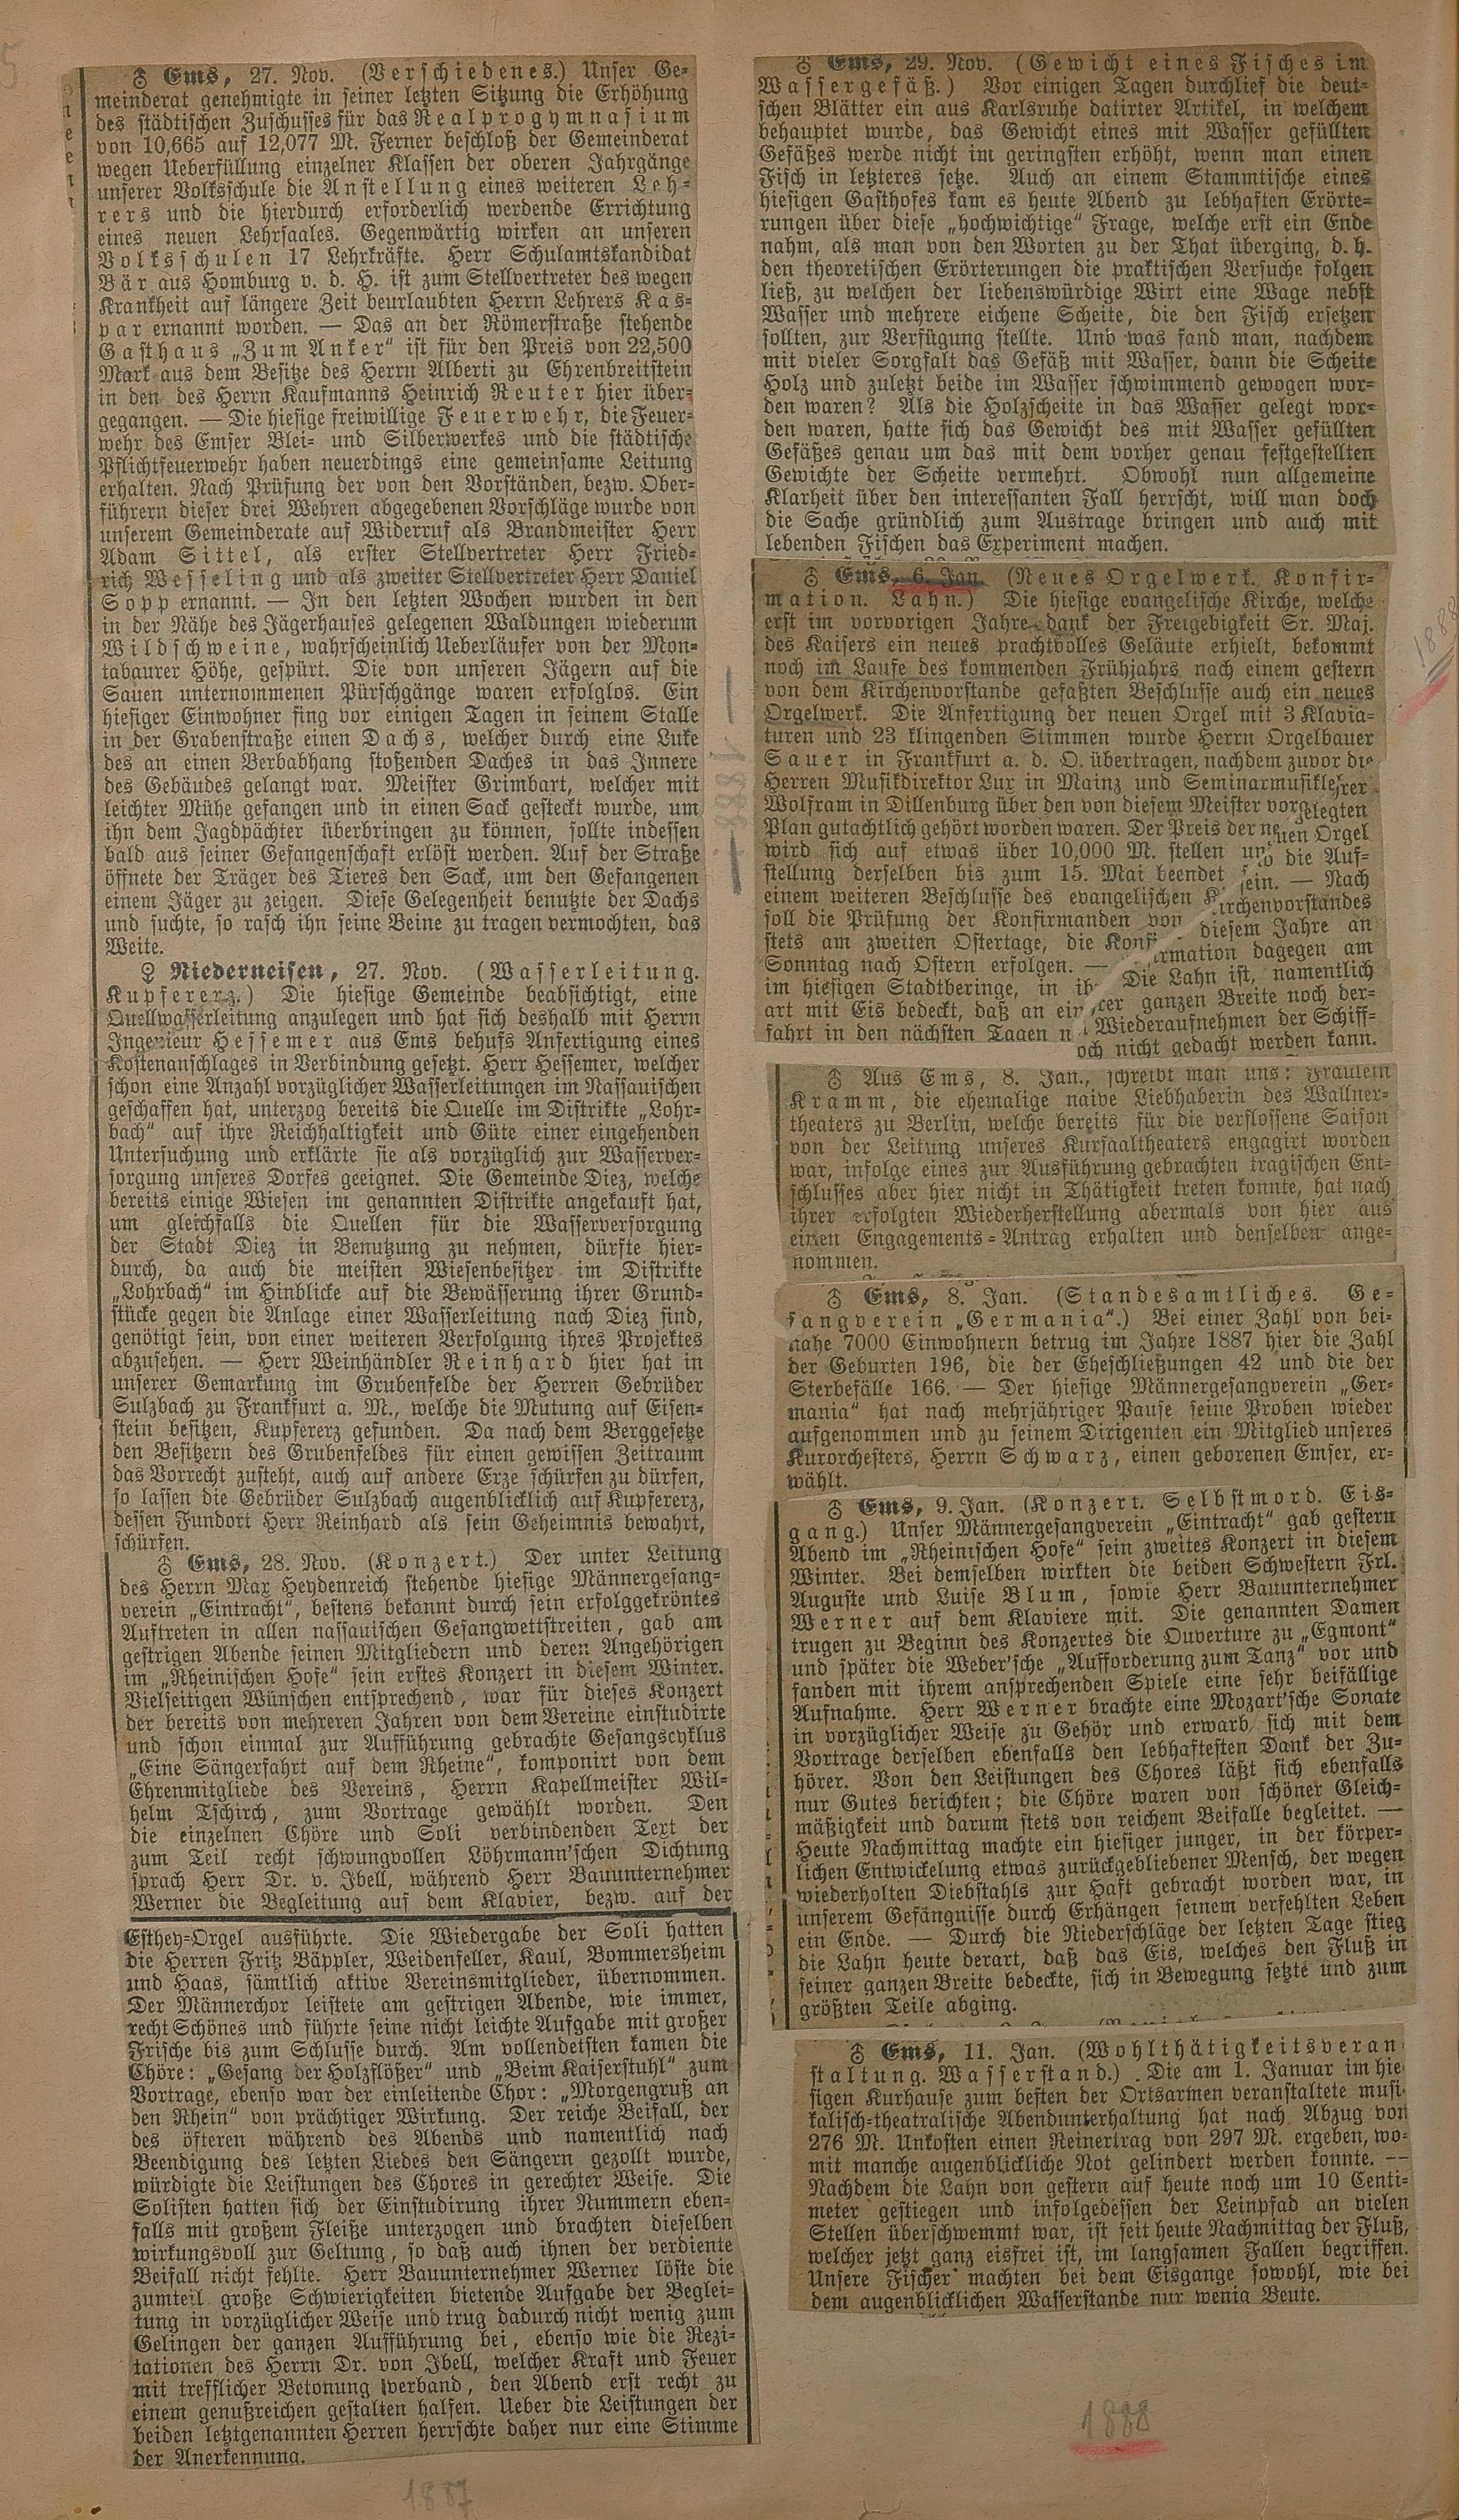 ♁ Ems, 27. Nov. (Verschiedenes.) Unser Ge-
meinderat genehmigte in seiner letzten Sitzung die Erhöhung
des städtischen Zuschusses für das Realprogymnasium
von 10,665 auf 12,077 M. Ferner beschloß der Gemeinderat
wegen Ueberfüllung einzelner Klassen der oberen Jahrgänge
unserer Volksschule die Anstellung eines weiteren Leh-
rers und die hierdurch erforderlich werdende Errichtung
eines neuen Lehrsaales. Gegenwärtig wirken an unseren
Volksschulen 17 Lehrkräfte. Herr Schulamtskandidat
Bär aus Homburg v. d. H. ist zum Stellvertreter des wegen
Krankheit auf längere Zeit beurlaubten Herrn Lehrers Kas-
par ernannt worden. — Das an der Römerstraße stehende
Gasthaus „Zum Anker“ ist für den Preis von 22,500
Mark aus dem Besitze des Herrn Alberti zu Ehrenbreitstein
in den des Herrn Kaufmanns Heinrich Reuter hier über-
gegangen. — Die hiesige freiwillige Feuerwehr, die Feuer-
wehr des Emser Blei- und Silberwerkes und die städtische
Pflichtfeuerwehr haben neuerdings eine gemeinsame Leitung
erhalten. Nach Prüfung der von den Vorständen, bezw. Ober-
führern dieser drei Wehren abgegebenen Vorschläge wurde von
unserem Gemeinderate auf Widerruf als Brandmeister Herr
Adam Sittel, als erster Stellvertreter Herr Fried-
rich Wesseling und als zweiter Stellvertreter Herr Daniel
Sopp ernannt. — In den letzten Wochen wurden in den
in der Nähe des Jägerhauses gelegenen Waldungen wiederum
Wildschweine, wahrscheinlich Ueberläufer von der Mon-
tabaurer Höhe, gespürt. Die von unseren Jägern auf die
Sauen unternommenen Pürschgänge waren erfolglos. Ein
hiesiger Einwohner fing vor einigen Tagen in seinem Stalle
in der Grabenstraße einen Dachs, welcher durch eine Luke
des an einen Berbabhang stoßenden Daches in das Innere
des Gebäudes gelangt war. Meister Grimbart, welcher mit
leichter Mühe gefangen und in einen Sack gesteckt wurde, um
ihn dem Jagdpächter überbringen zu können, sollte indessen
bald aus seiner Gefangenschaft erlöst werden. Auf der Straße
öffnete der Träger des Tieres den Sack, um den Gefangenen
einem Jäger zu zeigen. Diese Gelegenheit benutzte der Dachs
und suchte, so rasch ihn seine Beine zu tragen vermochten, das
Weite.
♀ Niederneisen, 27. Nov. (Wasserleitung.
Kupfererz.) Die hiesige Gemeinde beabsichtigt, eine
Quellwasserleitung anzulegen und hat sich deshalb mit Herrn
Ingenieur Hessemer aus Ems behufs Anfertigung eines
Kostenanschlages in Verbindung gesetzt. Herr Hessemer, welcher
schon eine Anzahl vorzüglicher Wasserleitungen im Nassauischen
geschaffen hat, unterzog bereits die Quelle im Distrikte „Lohr-
bach“ auf ihre Reichhaltigkeit und Güte einer eingehenden
Untersuchung und erklärte sie als vorzüglich zur Wasserver-
sorgung unseres Dorfes geeignet. Die Gemeinde Diez, welche
bereits einige Wiesen im genannten Distrikte angekauft hat,
um gleichfalls die Quellen für die Wasserversorgung
der Stadt Diez in Benutzung zu nehmen, dürfte hier-
durch, da auch die meisten Wiesenbesitzer im Distrikte
„Lohrbach“ im Hinblicke auf die Bewässerung ihrer Grund-
stücke gegen die Anlage einer Wasserleitung nach Diez sind,
genötigt sein, von einer weiteren Verfolgung ihres Projektes
abzusehen. — Herr Weinhändler Reinhard hier hat in
unserer Gemarkung im Grubenfelde der Herren Gebrüder
Sulzbach zu Frankfurt a. M., welche die Mutung auf Eisen-
stein besitzen, Kupfererz gefunden. Da nach dem Berggesetze
den Besitzern des Grubenfeldes für einen gewissen Zeitraum
das Vorrecht zusteht, auch auf andere Erze schürfen zu dürfen,
so lassen die Gebrüder Sulzbach augenblicklich auf Kupfererz,
dessen Fundort Herr Reinhard als sein Geheimnis bewahrt,
schürfen.
♁ Ems, 28. Nov. (Konzert.) Der unter Leitung
des Herrn Max Heydenreich stehende hiesige Männergesang-
verein „Eintracht“, bestens bekannt durch sein erfolggekröntes
Auftreten in allen nassauischen Gesangwettstreiten, gab am
gestrigen Abende seinen Mitgliedern und deren Angehörigen
im „Rheinischen Hofe“ sein erstes Konzert in diesem Winter.
Vielseitigen Wünschen entsprechend, war für dieses Konzert
der bereits von mehreren Jahren von dem Vereine einstudirte
und schon einmal zur Aufführung gebrachte Gesangscyklus
„Eine Sängerfahrt auf dem Rheine“, komponirt von dem
Ehrenmitgliede des Vereins, Herrn Kapellmeister Wil-
helm Tschirch, zum Vortrage gewählt worden. Den
die einzelnen Chöre und Soli verbindenden Text der
zum Teil recht schwungvollen Löhrmann'schen Dichtung
sprach Herr Dr. v. Ibell, während Herr Bauunternehmer
Werner die Begleitung auf dem Klavier, bezw. auf der
Esthey-Orgel ausführte. Die Wiedergabe der Soli hatten
die Herren Fritz Bäppler, Weidenfeller, Kaul, Bommersheim
und Haas, sämtlich aktive Vereinsmitglieder, übernommen.
Der Männerchor leistete am gestrigen Abende, wie immer,
recht Schönes und führte seine nicht leichte Aufgabe mit großer
Frische bis zum Schlusse durch. Am vollendetsten kamen die
Chöre: „Gesang der Holzflößer“ und „Beim Kaiserstuhl“ zum
Vortrage, ebenso war der einleitende Chor: „Morgengruß an
den Rhein“ von prächtiger Wirkung. Der reiche Beifall, der
des öfteren während des Abends und namentlich nach
Beendigung des letzten Liedes den Sängern gezollt wurde,
würdigte die Leistungen des Chores in gerechter Weise. Die
Solisten hatten sich der Einstudirung ihrer Nummern eben-
falls mit großem Fleiße unterzogen und brachten dieselben
wirkungsvoll zur Geltung, so daß auch ihnen der verdiente
Beifall nicht fehlte. Herr Bauunternehmer Werner löste die
zumteil große Schwierigkeiten bietende Aufgabe der Beglei-
tung in vorzüglicher Weise und trug dadurch nicht wenig zum
Gelingen der ganzen Aufführung bei, ebenso wie die Rezi-
tationen des Herrn Dr. von Ibell, welcher Kraft und Feuer
mit trefflicher Betonung verband, den Abend erst recht zu
einem genußreichen gestalten halfen. Ueber die Leistungen der
beiden letztgenannten Herren herrschte daher nur eine Stimme
der Anerkennung.
1887
♁ Ems, 29. Nov. (Gewicht eines Fisches im
Wassergefäß.) Vor einigen Tagen durchlief die deut-
schen Blätter ein aus Karlsruhe datirter Artikel, in welchem
behauptet wurde, das Gewicht eines mit Wasser gefüllten
Gefäßes werde nicht im geringsten erhöht, wenn man einen
Fisch in letzteres setze. Auch an einem Stammtische eines
hiesigen Gasthofes kam es heute Abend zu lebhaften Erörte-
rungen über diese „hochwichtige“ Frage, welche erst ein Ende
nahm, als man von den Worten zu der That überging, d. h.
den theoretischen Erörterungen die praktischen Versuche folgen
ließ, zu welchen der liebenswürdige Wirt eine Wage nebst
Wasser und mehrere eichene Scheite, die den Fisch ersetzen
sollten, zur Verfügung stellte. Und was fand man, nachdem
mit vieler Sorgfalt das Gefäß mit Wasser, dann die Scheite
Holz und zuletzt beide im Wasser schwimmend gewogen wor-
den waren? Als die Holzscheite in das Wasser gelegt wor-
den waren, hatte sich das Gewicht des mit Wasser gefüllten
Gefäßes genau um das mit dem vorher genau festgestellten
Gewichte der Scheite vermehrt. Obwohl nun allgemeine
Klarheit über den interessanten Fall herrscht, will man doch
die Sache gründlich zum Austrage bringen und auch mit
lebenden Fischen das Experiment machen.
♁ Ems, 6. Jan. (Neues Orgelwerk. Konfir-
mation. Lahn.) Die hiesige evangelische Kirche, welche
erst im vorvorigen Jahre dank der Freigebigkeit Sr. Maj.
des Kaisers ein neues prachtvolles Geläute erhielt, bekommt
noch im Laufe des kommenden Frühjahrs nach einem gestern
von dem Kirchenvorstande gefaßten Beschlusse auch ein neues
Orgelwerk. Die Anfertigung der neuen Orgel mit 3 Klavia-
turen und 23 klingenden Stimmen wurde Herrn Orgelbauer
Sauer in Frankfurt a. d. O. übertragen, nachdem zuvor die
Herren Musikdirektor Lux in Mainz und Seminarmusiklehrer
Wolfram in Dillenburg über den von diesem Meister vorgelegten
Plan gutachtlich gehört worden waren. Der Preis der neuen Orgel
wird sich auf etwas über 10,000 M. stellen und die Auf-
stellung derselben bis zum 15. Mai beendet sein. — Nach
einem weiteren Beschlusse des evangelischen Kirchenvorstandes
soll die Prüfung der Konfirmanden von diesem Jahre an
stets am zweiten Ostertage, die Konfirmation dagegen am
Sonntag nach Ostern erfolgen. — Die Lahn ist, namentlich
im hiesigen Stadtberinge, in ihrer ganzen Breite noch der-
art mit Eis bedeckt, daß an ein Wiederaufnehmen der Schiff-
fahrt in den nächsten Tagen noch nicht gedacht werden kann.
1888
♁ Aus Ems, 8. Jan., schreibt man uns: Fräulein
Kramm, die ehemalige naive Liebhaberin des Wallner-
theaters zu Berlin, welche bereits für die verflossene Saison
von der Leitung unseres Kursaaltheaters engagirt worden
war, infolge eines zur Ausführung gebrachten tragischen Ent-
schlusses aber hier nicht in Thätigkeit treten konnte, hat nach
ihrer erfolgten Wiederherstellung abermals von hier aus
einen Engagements-Antrag erhalten und denselben ange-
nommen.
♁ Ems, 8. Jan. (Standesamtliches. Ge-
sangverein „Germania“.) Bei einer Zahl von bei-
nahe 7000 Einwohnern betrug im Jahre 1887 hier die Zahl
der Geburten 196, die der Eheschließungen 42 und die der
Sterbefälle 166. — Der hiesige Männergesangverein „Ger-
mania“ hat nach mehrjähriger Pause seine Proben wieder
aufgenommen und zu seinem Dirigenten ein Mitglied unseres
Kurorchesters, Herrn Schwarz, einen geborenen Emser, er-
wählt.
♁ Ems, 9. Jan. (Konzert. Selbstmord. Eis-
gang.) Unser Männergesangverein „Eintracht“ gab gestern
Abend im „Rheinischen Hofe“ sein zweites Konzert in diesem
Winter. Bei demselben wirkten die beiden Schwestern Frl.
Auguste und Luise Blum, sowie Herr Bauunternehmer
Werner auf dem Klaviere mit. Die genannten Damen
trugen zu Beginn des Konzertes die Ouverture zu „Egmont“
und später die Weber'sche „Aufforderung zum Tanz“ vor und
fanden mit ihrem ansprechenden Spiele eine sehr beifällige
Aufnahme. Herr Werner brachte eine Mozart'sche Sonate
in vorzüglicher Weise zu Gehör und erwarb sich mit dem
Vortrage derselben ebenfalls den lebhaftesten Dank der Zu-
hörer. Von den Leistungen des Chores läßt sich ebenfalls
nur Gutes berichten; die Chöre waren von schöner Gleich-
mäßigkeit und darum stets von reichem Beifalle begleitet. —
Heute Nachmittag machte ein hiesiger junger, in der körper-
lichen Entwickelung etwas zurückgebliebener Mensch, der wegen
wiederholten Diebstahls zur Haft gebracht worden war, in
unserem Gefängnisse durch Erhängen seinem verfehlten Leben
ein Ende. — Durch die Niederschläge der letzten Tage stieg
die Lahn heute derart, daß das Eis, welches den Fluß in
seiner ganzen Breite bedeckte, sich in Bewegung setzte und zum
größten Teile abging.
♁ Ems, 11. Jan. (Wohlthätigkeitsveran
staltung. Wasserstand.) Die am 1. Januar im hie-
sigen Kurhause zum besten der Ortsarmen veranstaltete musi-
kalisch-theatralische Abendunterhaltung hat nach Abzug von
276 M. Unkosten einen Reinertrag von 297 M. ergeben, wo-
mit manche augenblickliche Not gelindert werden konnte. —
Nachdem die Lahn von gestern auf heute noch um 10 Centi-
meter gestiegen und infolgedessen der Leinpfad an vielen
Stellen überschwemmt war, ist seit heute Nachmittag der Fluß,
welcher jetzt ganz eisfrei ist, im langsamen Fallen begriffen.
Unsere Fischer machten bei dem Eisgange sowohl, wie bei
dem augenblicklichen Wasserstande nur wenig Beute.
1888